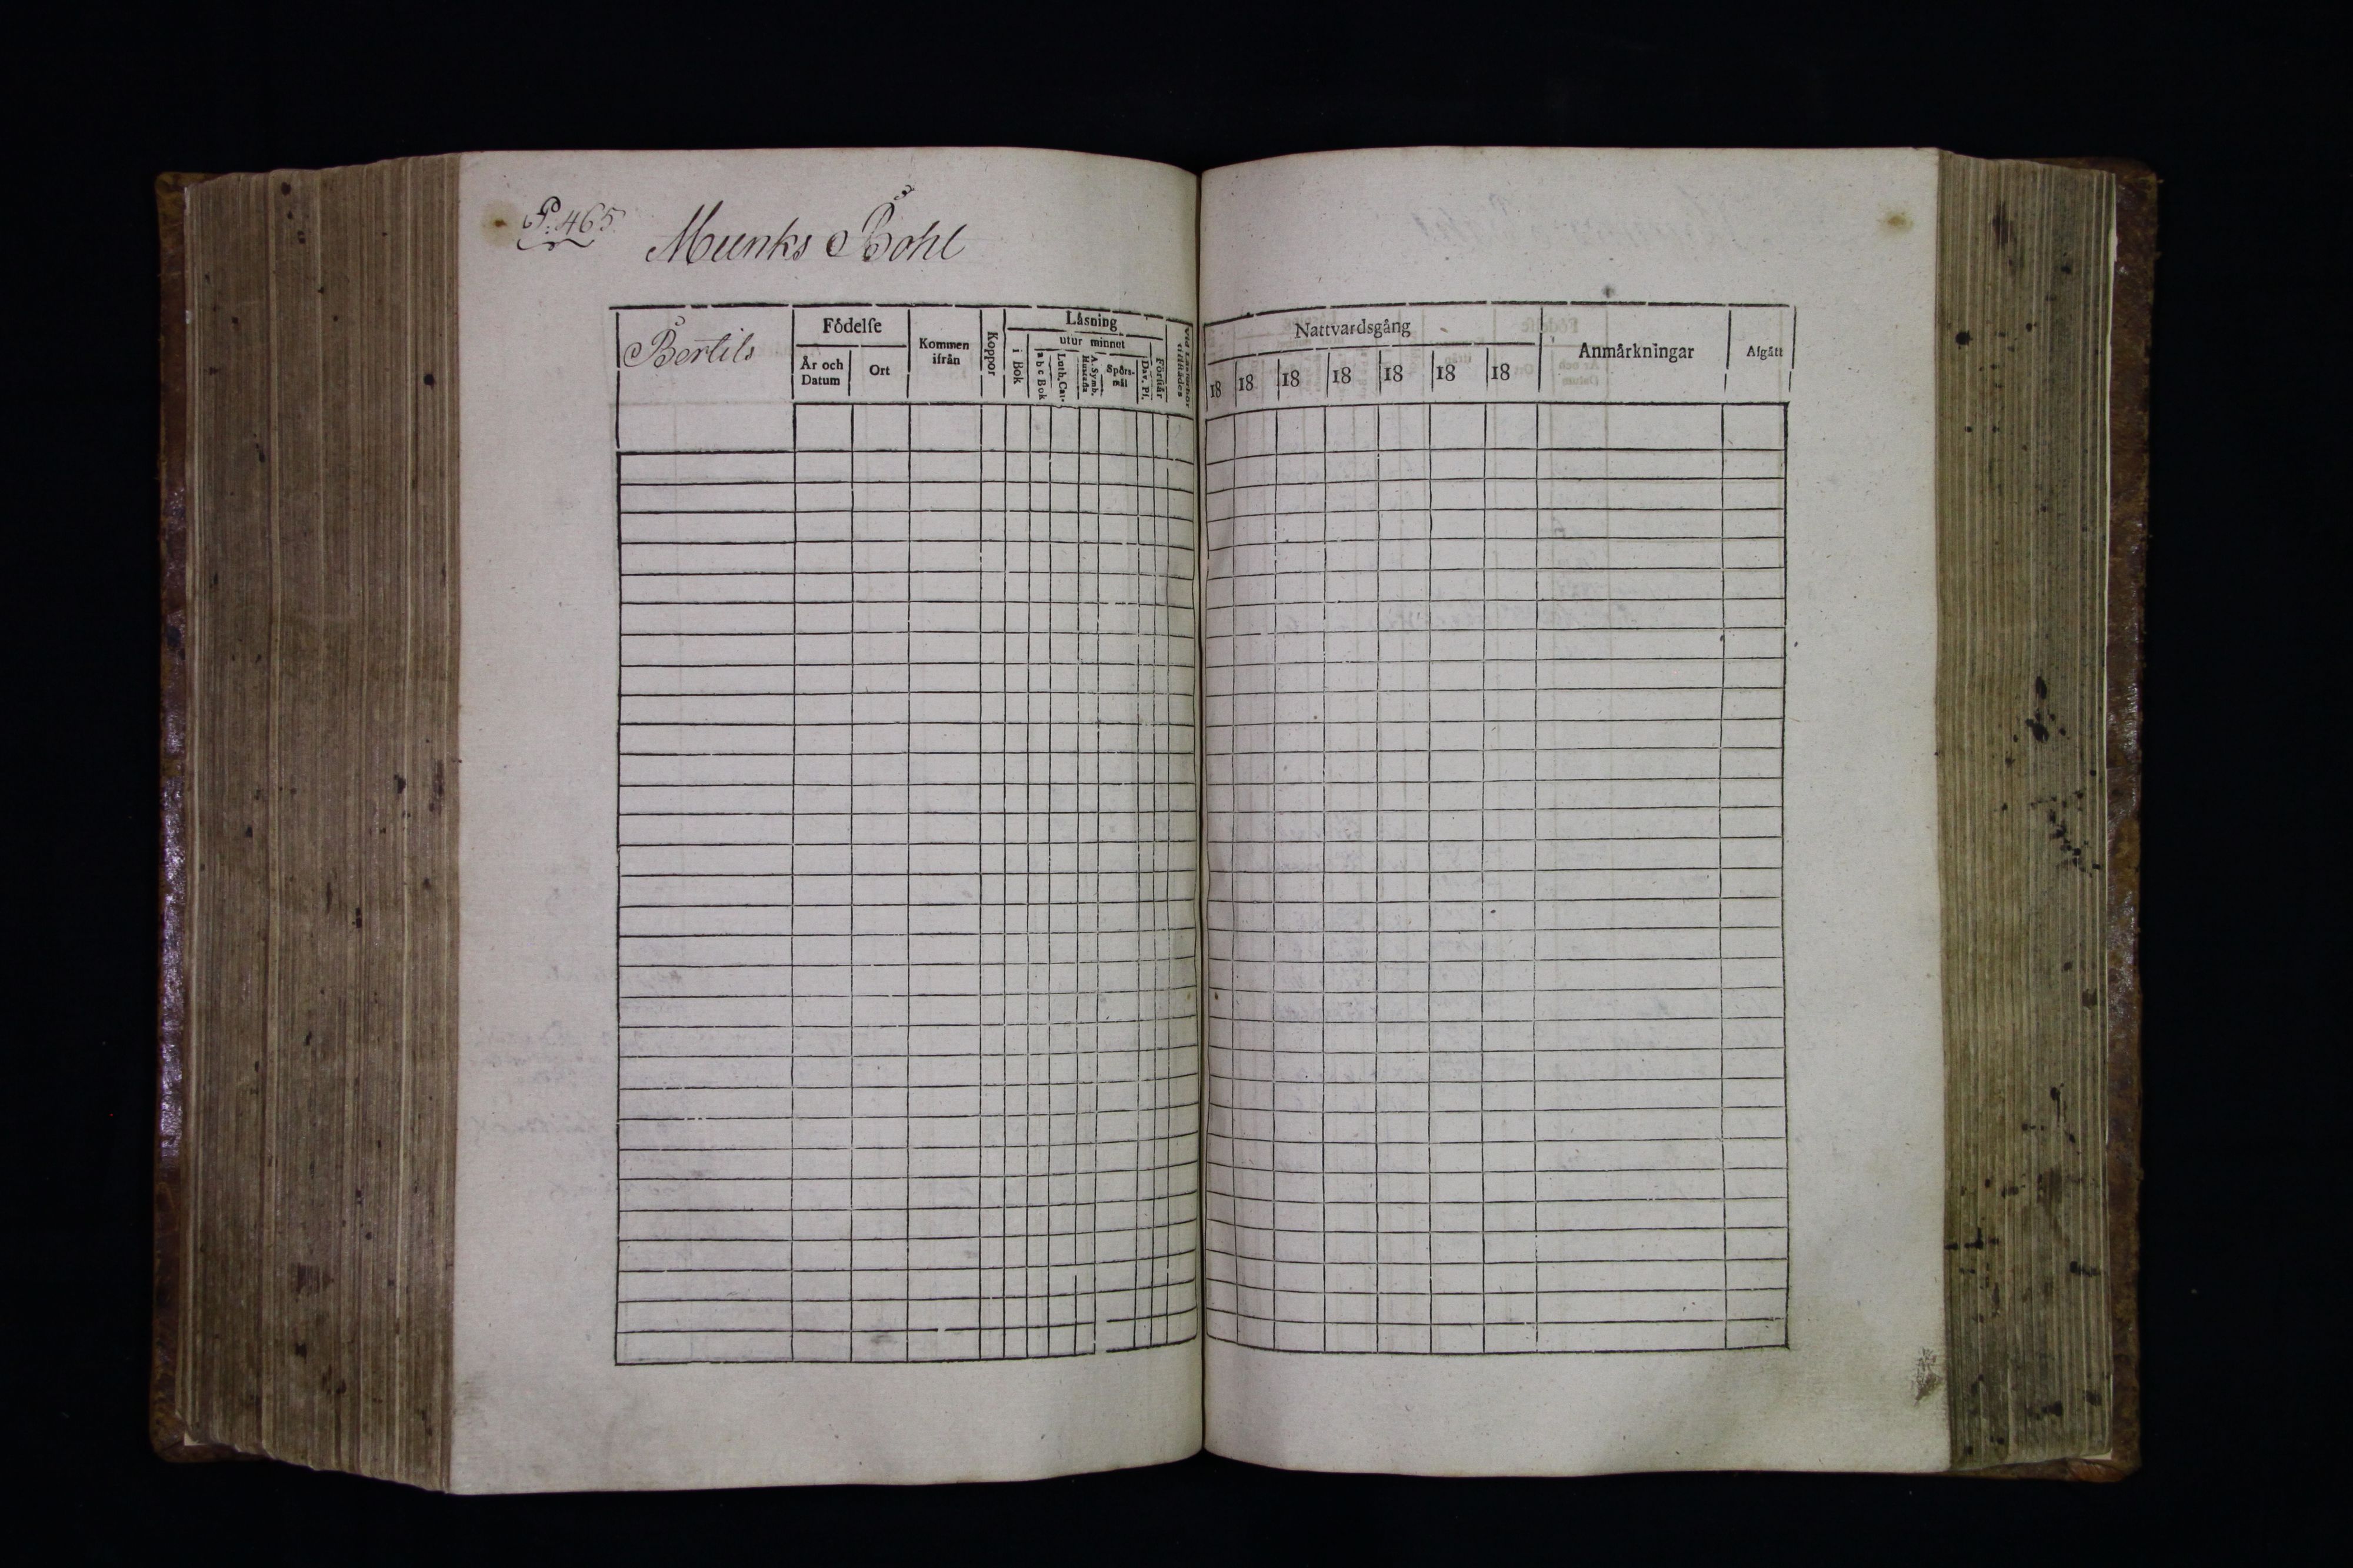 P. 465.
Munks Bohl
Bertils
Födelse
År och Datum
Ort
Kommen ifrån
Koppor
Läsning
utur minnet
i Bok
a b c Bok
Luth. Cat.
A. Symb. Hustafla
Spörsmål
Dav. Ps.
Förstår
Nattvardsgång
18 18 18 18 18 18 18
Anmärkningar
Afgått